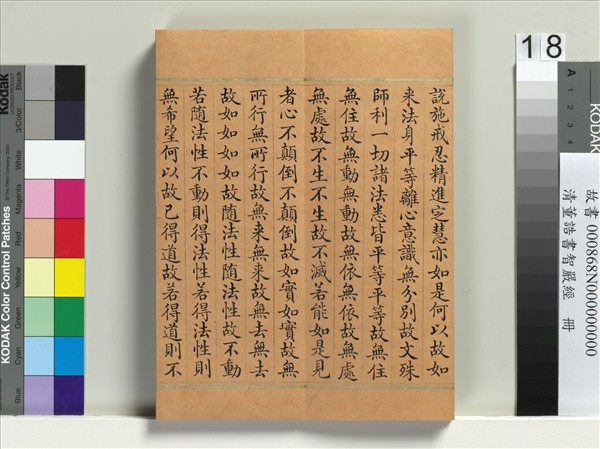 說施戒忍精進定慧亦如是何以故如
来法身平等離心意識無分別故文殊
師利一切諸法悉皆平等平等故無住
無住故無動無動故無依無依故無處
無處故不生不生故不滅若能如是見
者心不顛倒不顛倒故如實如實故無
所行無所行故無来無来故無去無去
故如如如如故随法性随法性故不動
若随法性不動則得法性若得法性則
無希望何以故已得道故若得道則不
故書 000868N000000000
清董誥書智嚴經 冊
18
A
1
2
3
4
KODAK
KODAK
Kodak
KODAK Color Control Patches
Blue
Cyan
Green
Yellow
Red
Magenta
White
3/Color
Black